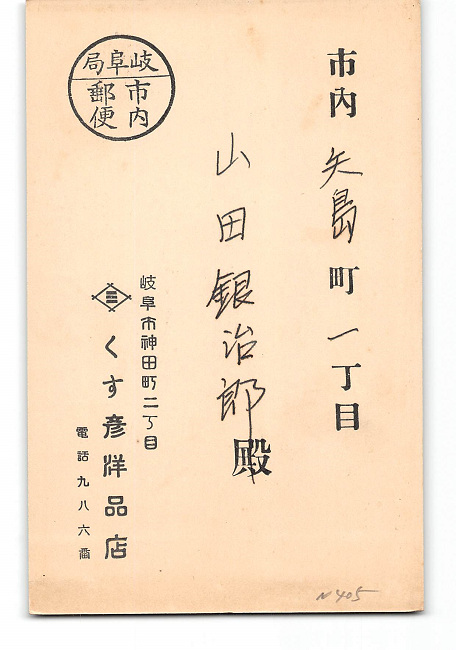 市内矢島町一丁目
山田銀治郎殿
岐阜局
市内
郵便
岐阜市神田町二丁目
くす彦洋品店
電話九八六番
N405